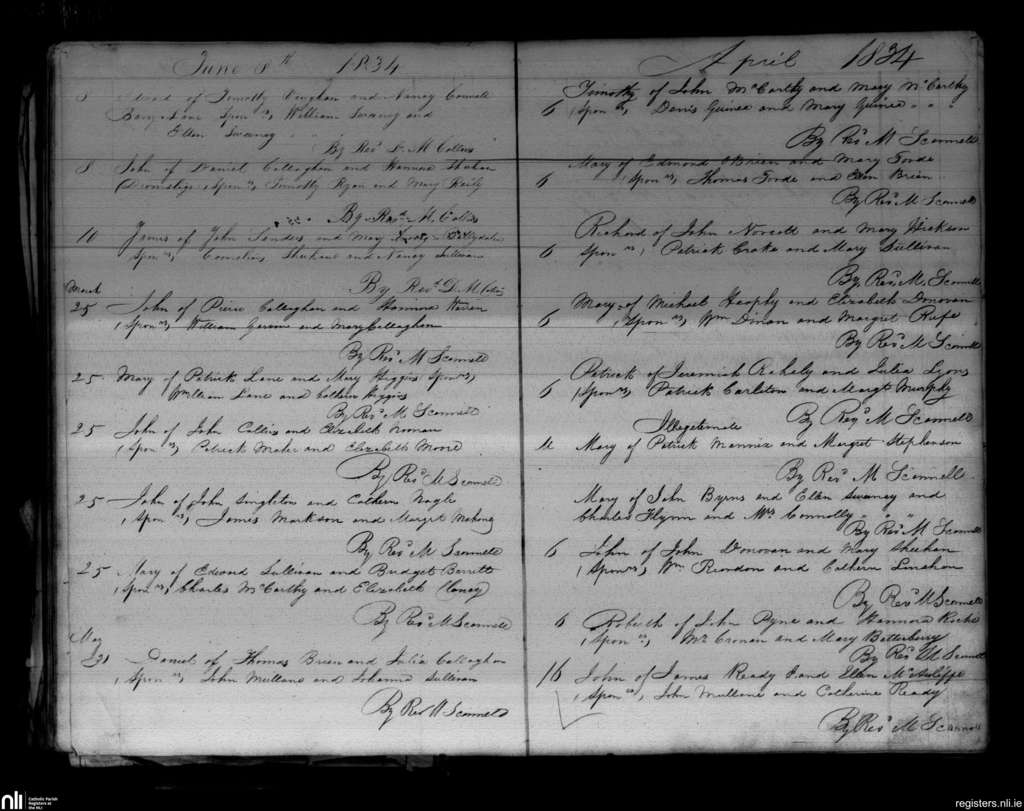 June 8th 1834
8 of Timothy and Nancy Connell
Lane Spons, William Swaney and
Ellen Swaney
By Revd D. M Collins
8 John of Daniel Callaghan and Hannora Shehan
Spons, Timothy Ryan and Mary Reily
By Revd M. Collins
10 James of John Sander and Mary
Spons, Cornelius Shehane and Nancy Sullivan
By Revd D. M. Collins
March
25 John of Pierce Callaghan and Hannora
Spons, William and Mary Callaghan
By Revd M Scannell
25 Mary of Patrick Lane and Mary Higgins Spons,
William Lane and Cathern Higgins
By Revd M Scannell
25 John of John Collins and Elizabeth Noonan
Spons, Patrick Maher and Elizabeth Moore
By Revd M Scannell
25 John of John Singleton and Cathern Nagle
Spons, James Markson and Margret Mahony
By Revd M Scannell
25 Mary of Edward Sullivan and Bridget Barrett
Spons, Charles McCarthy and Elizabeth Clancy
By Revd M Scannell
May
21 Daniel of Thomas Brien and Julia Callaghan
Spons, John Mullane and Johanna Sullivan
By Revd M Scannell
April 1834
Timothy of John McCarthy and Mary McCarthy
6 Spons, Denis Guinee and Mary Guinee
By Revd M Scannell
Mary of Edmond OBrien and Mary Forde
6 Spons, Thomas Forde and Ellen Brien
By Revd M Scannell
Richard of John Norcott and Mary Hickson
6 Spons, Patrick Croke and Mary Sullivan
By Revd M. Scannell
Mary of Michael Heaphy and Elizabeth Donovan
6 Spons, Wm Dinan and Margret Keefe
By Revd M Scannell
Patrick of Jeremiah Rahely and Julia Lyons
6 Spons, Patrick Carleton and Margt Murphy
By Revd M Scannell
Illegetimate
11 Mary of Patrick Mannix and Margret Stephenson
By Revd M Scannell
Mary of John Byrns and Ellen Swaney and
Charles Flynn and Mrs Connolly
By Revd M Scannell
6 John of John Donovan and Mary Sheehan
Spons, Wm Reardon and Cathern Linahan
By Revd M Scannell
6 Robert of John Pyne and Hannora Roche
Spons, Mr Cronan and Mary Batterberry
By Revd M Scannell
16 John of James Ready and Ellen McAuliffe
Spons, John Mullane and Catherine Ready
By Revd M Scannell
nli
Catholic Parish
Registers at
the NLI
registers.nli.ie